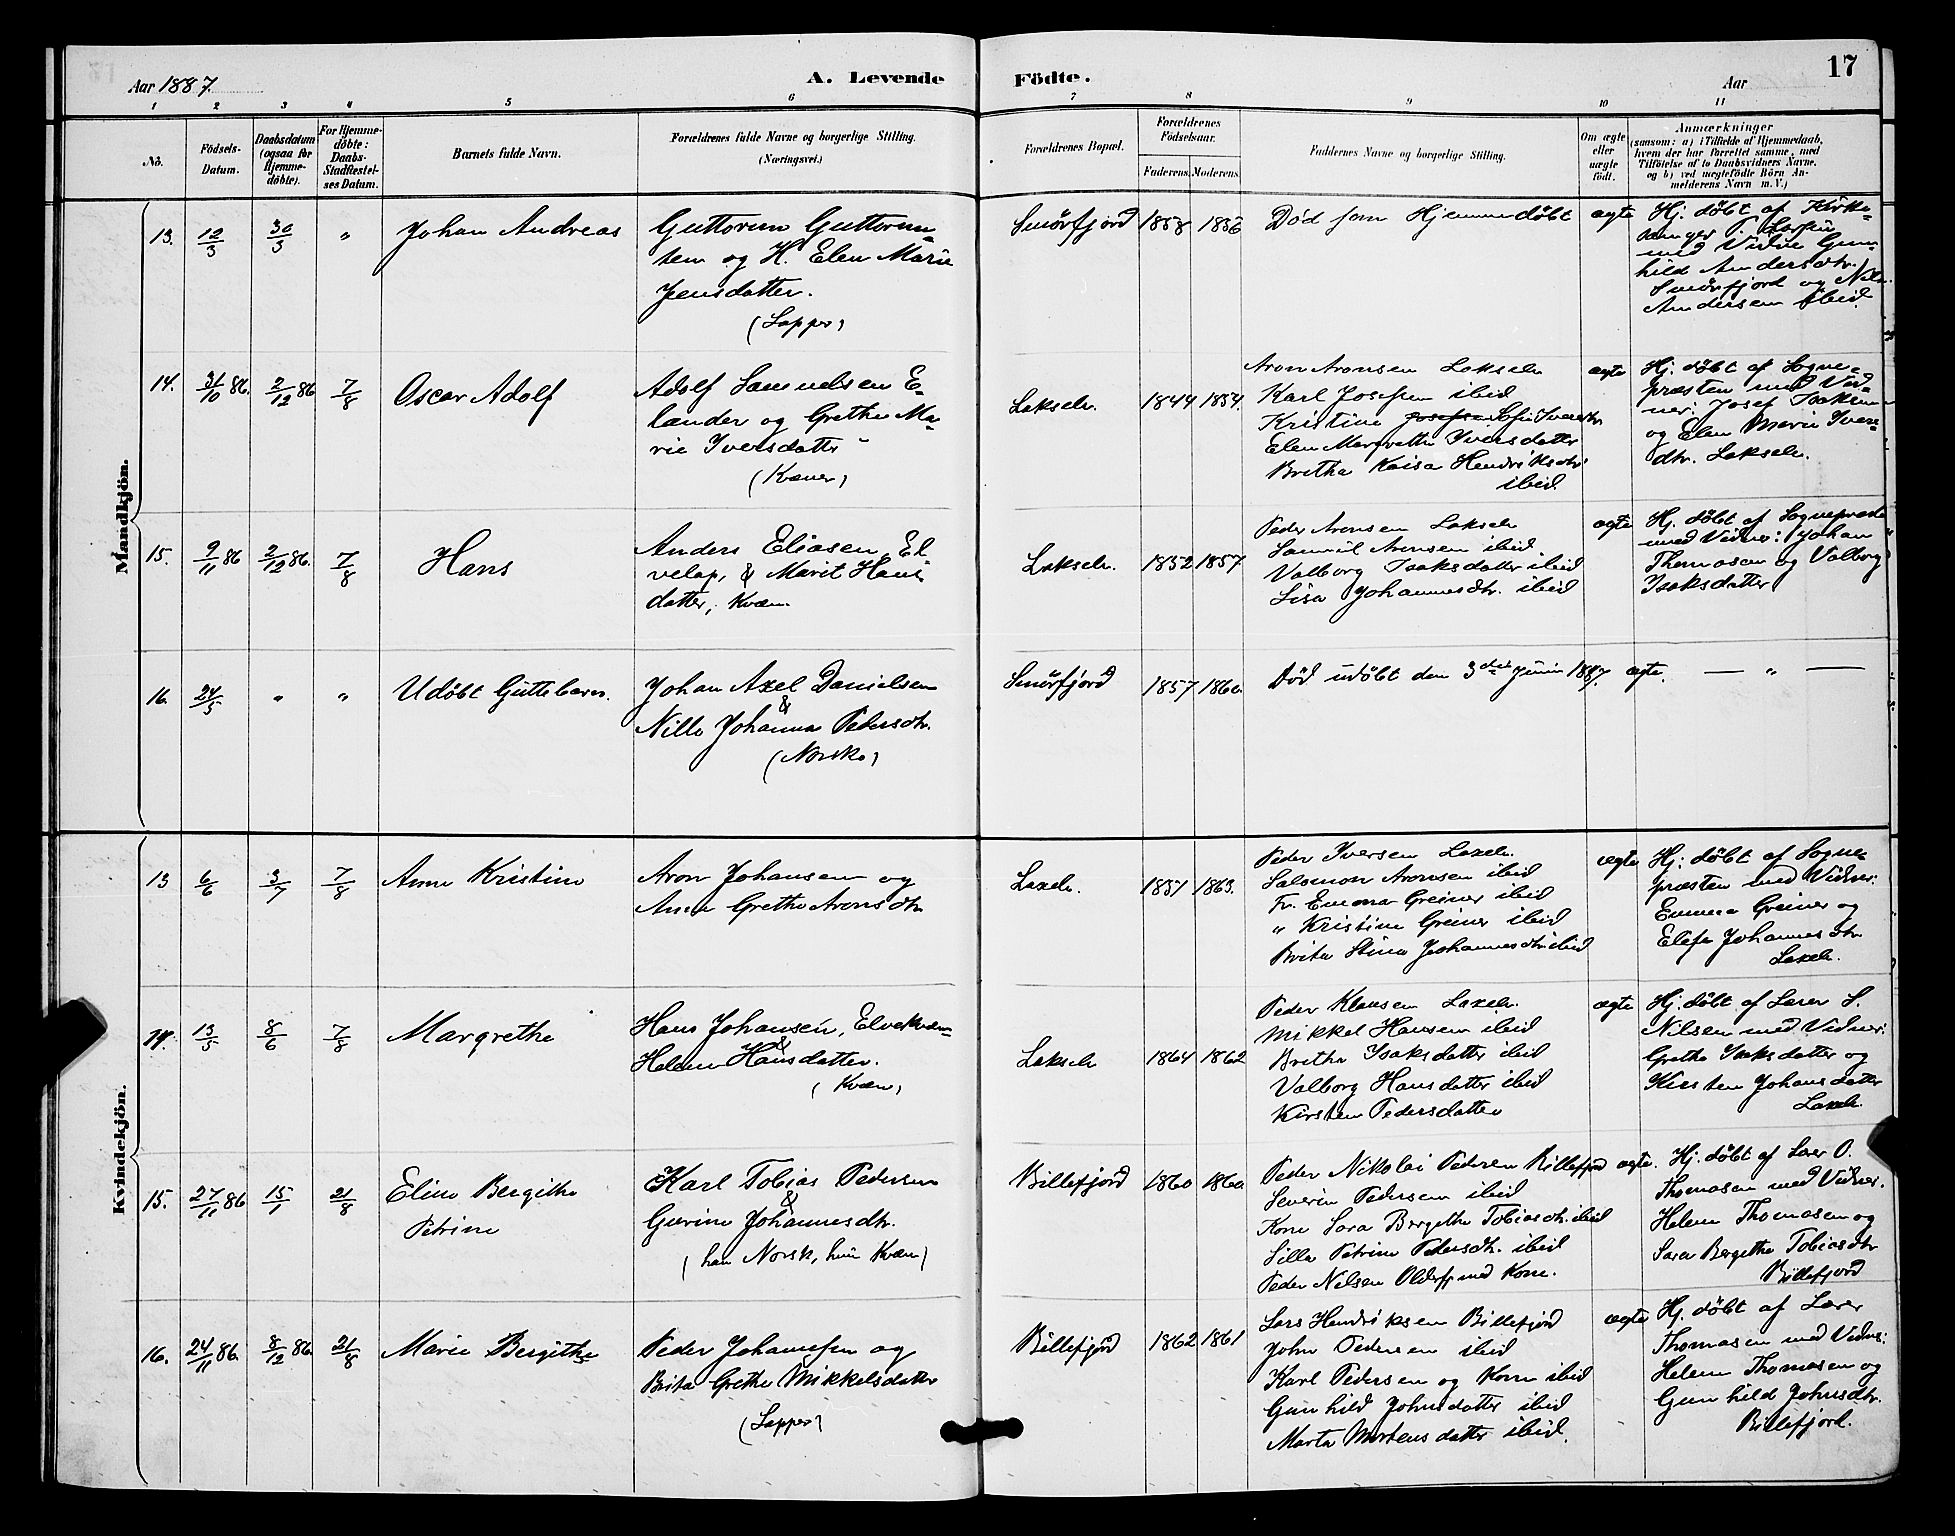 Aar 1887.
A. Levende
Födte.
Aar
17
1 2 3 4 5 6 7 8 9 10 11
No.
Födsels-
Datum.
Daabsdatum
(ogsaa for
Hjemme-
döbte).
For Hjemme-
döbte:
Daabs-
Stadfæstel-
ses Datum.
Barnets fulde Navn.
Forældrenes fulde Navne og borgerlige Stilling.
(Næringsvei.)
Forældrenes Bopæl.
Forældrenes
Födselsaar.
Faderens. Moderens.
Faddernes Navne og borgerlige Stilling.
Om ægte
eller
uægte
födt.
Anmærkninger
(saasom: a) i Tilfælde af Hjemmedaab,
hvem der har forrettet samme, med
Tilföielse af to Daabsvidners Navne,
og b) ved uægtefödte Börn An-
melderens Navn m. V.)
Mandkjön.
13. 12/3 30/3 " Johan Andreas
Guttorm Guttorm-
sen og H. Elen Marie
Jensdatter.
(Lapper)
Smörfjord 1858 1856 Död som Hjemmedöbt ægte
Hj. döbt af Kirke-
sanger Larsen
med Vidne Gun-
hild Andersdtr.
Smörfjord og Nils
Andersen ibid.
14. 31/10 86. 2/12 86 7/8 Oscar Adolf
Adolf Samuelsen E-
lænder og Grethe Ma-
rie Iversdatter
(Kvæner)
Lakselv. 1844 1854.
Aron Aronsen Lakselv
Karl Josefsen ibid
Kristine Josefsen Sofie Iversdtr
Elen Margrethe Iversdatter
Britha Kaisa Hendriksdtr.
ibid.
ægte
Hj. döbt af Sogne-
præsten med Vid-
ner: Josef Isaksen
og Elen Marie Ivers-
dtr. Lakselv.
15. 9/11 86 2/12 86. 7/8 Hans
Anders Eliasen El-
velap, & Marit Hans-
datter, Kvæn.
Lakselv. 1852 1857
Peder Aronsen Lakselv
Samuel Aronsen ibid.
Valborg Isaksdatter ibid
Lisa Johannesdtr. ibid
ægte
Hj. döbt af Sognepræst
med Vidner: Johan
Thomasen og Valborg
Isaksdatter
16. 24/5 " " Udöbt Guttebarn.
Johan Axel Danielsen
&
Nille Johanna Pedersdtr.
(Norske)
Smörfjord 1857 1860. Död udöbt den 3die Juni 1887. ægte. — " —
Kvindekjön.
13 6/6 3/7 7/8 Anne Kristine
Aron Johansen og
Anna Grethe Aronsdtr
Laxelv. 1857 1863.
Peder Iversen Laxelv.
Salomon Aronsen ibid
Fr. Emma Greiner ibid
" Kristine Greiner ibid
Brita Stina Johannesdtr ibid
ægte
Hj. döbt af Sogne-
præsten med Vidner:
Emma Greiner og
Johannesdtr
Laxelv.
14. 13/5 8/6 7/8 Margrethe
Hans Johansen, Elvekvæn
&
Helene Hansdatter.
(Kvæn)
Lakselv 1864 1862
Peder Klausen Laxelv.
Mikkel Hansen ibid
Britha Isaksdatter ibid
Valborg Hansdatter ibid
Kirsten Pedersdatter
ægte
Hj. döbt af Lærer S.
Nilsen med Vidner:
Grethe Isaksdatter og
Kirsten Johansdatter
Laxelv.
15. 27/11 86 15/1 21/8 Eline Bergithe
Petrine
Karl Tobias Pedersen
&
Gurine Johannesdtr.
(han Norsk, hun Kvæn)
Billefjord 1860 1860.
Peder Nikolai Pedersen Billefjord
Severin Pedersen ibid
Kone Sara Bergethe Tobiasdtr. ibid
Silla Petrine Pedersdtr. ibid
Peder Nilsen Olderfj med Kone.
ægte.
Hj. döbt af Lærer O.
Thomasen med Vidner.
Helene Thomasen og
Sara Bergethe Tobiasdtr
Billefjord
16. 24/11 86. 8/12 86. 21/8 Marie Bergithe
Peder Johannesen og
Brita Grethe Mikkelsdatter
(Lapper)
Billefjord 1862 1861
Lars Hendriksen Billefjord
John Pedersen ibid
Karl Pedersen og Kone ibid
Gunhild Johnsdatter ibid
Marta Mortensdatter ibid.
ægte
Hj. döbt af Lærer
Thomasen med Vidner:
Helene Thomasen og
Gunhild Johnsdtr.
Billefjord.